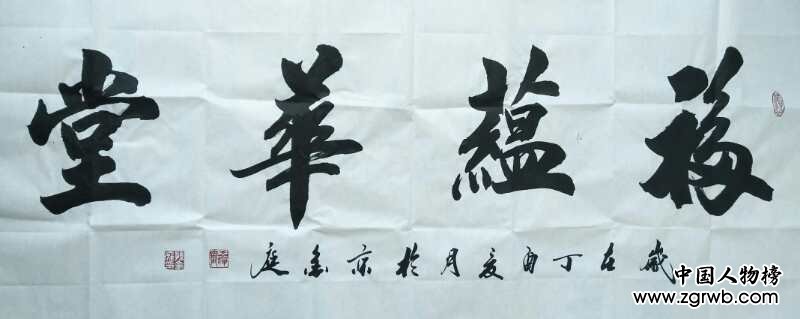 福藴華堂
歲在丁酉夏月於京庭
中国人物榜
www.zgrwb.com